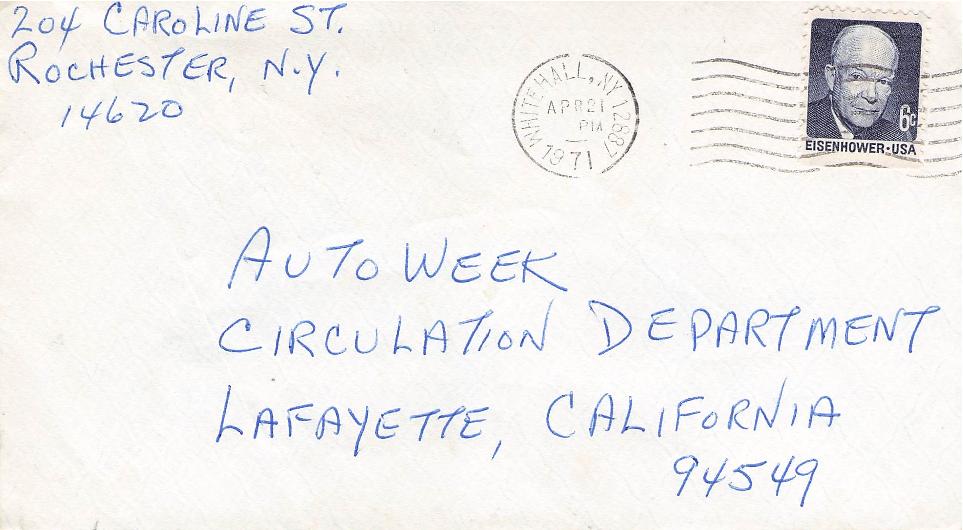 204 CAROLINE ST.
ROCHESTER, N.Y.
14620
WHITEHALL, NY 12887
APR 21
PM
1971
6c
EISENHOWER·USA
AUTO WEEK
CIRCULATION DEPARTMENT
LAFAYETTE, CALIFORNIA
94549